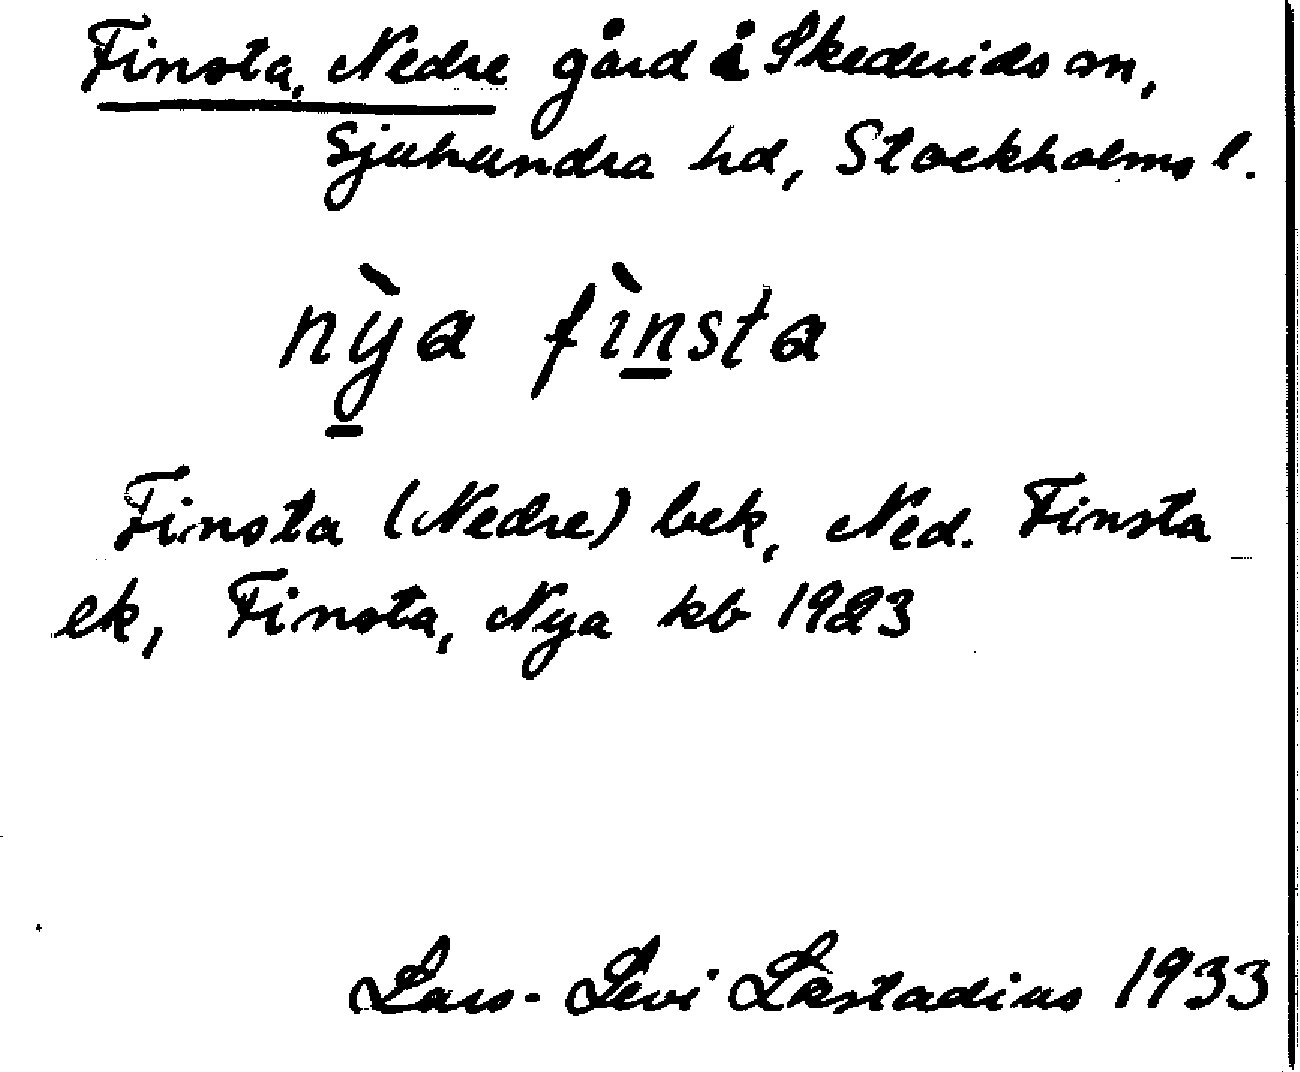 Finsta, Nedre gård i Skederids sn,
Sjuhundra hd, Stockholms l.
nỳa fìnsta
Finsta (Nedre) bek, Ned. Finsta
ek, Finsta, Nya kb 1923
Lars-Levi Læstadius 1933